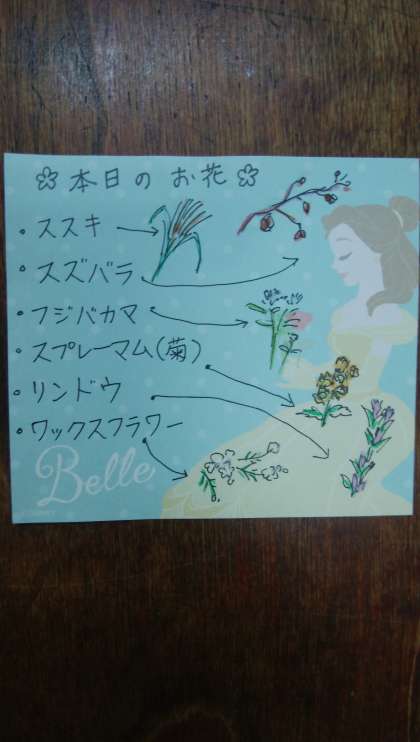 本日のお花
・ススキ
・スズバラ
・フジバカマ
・スプレーマム(菊)
・リンドウ
・ワックスフラワー
Belle